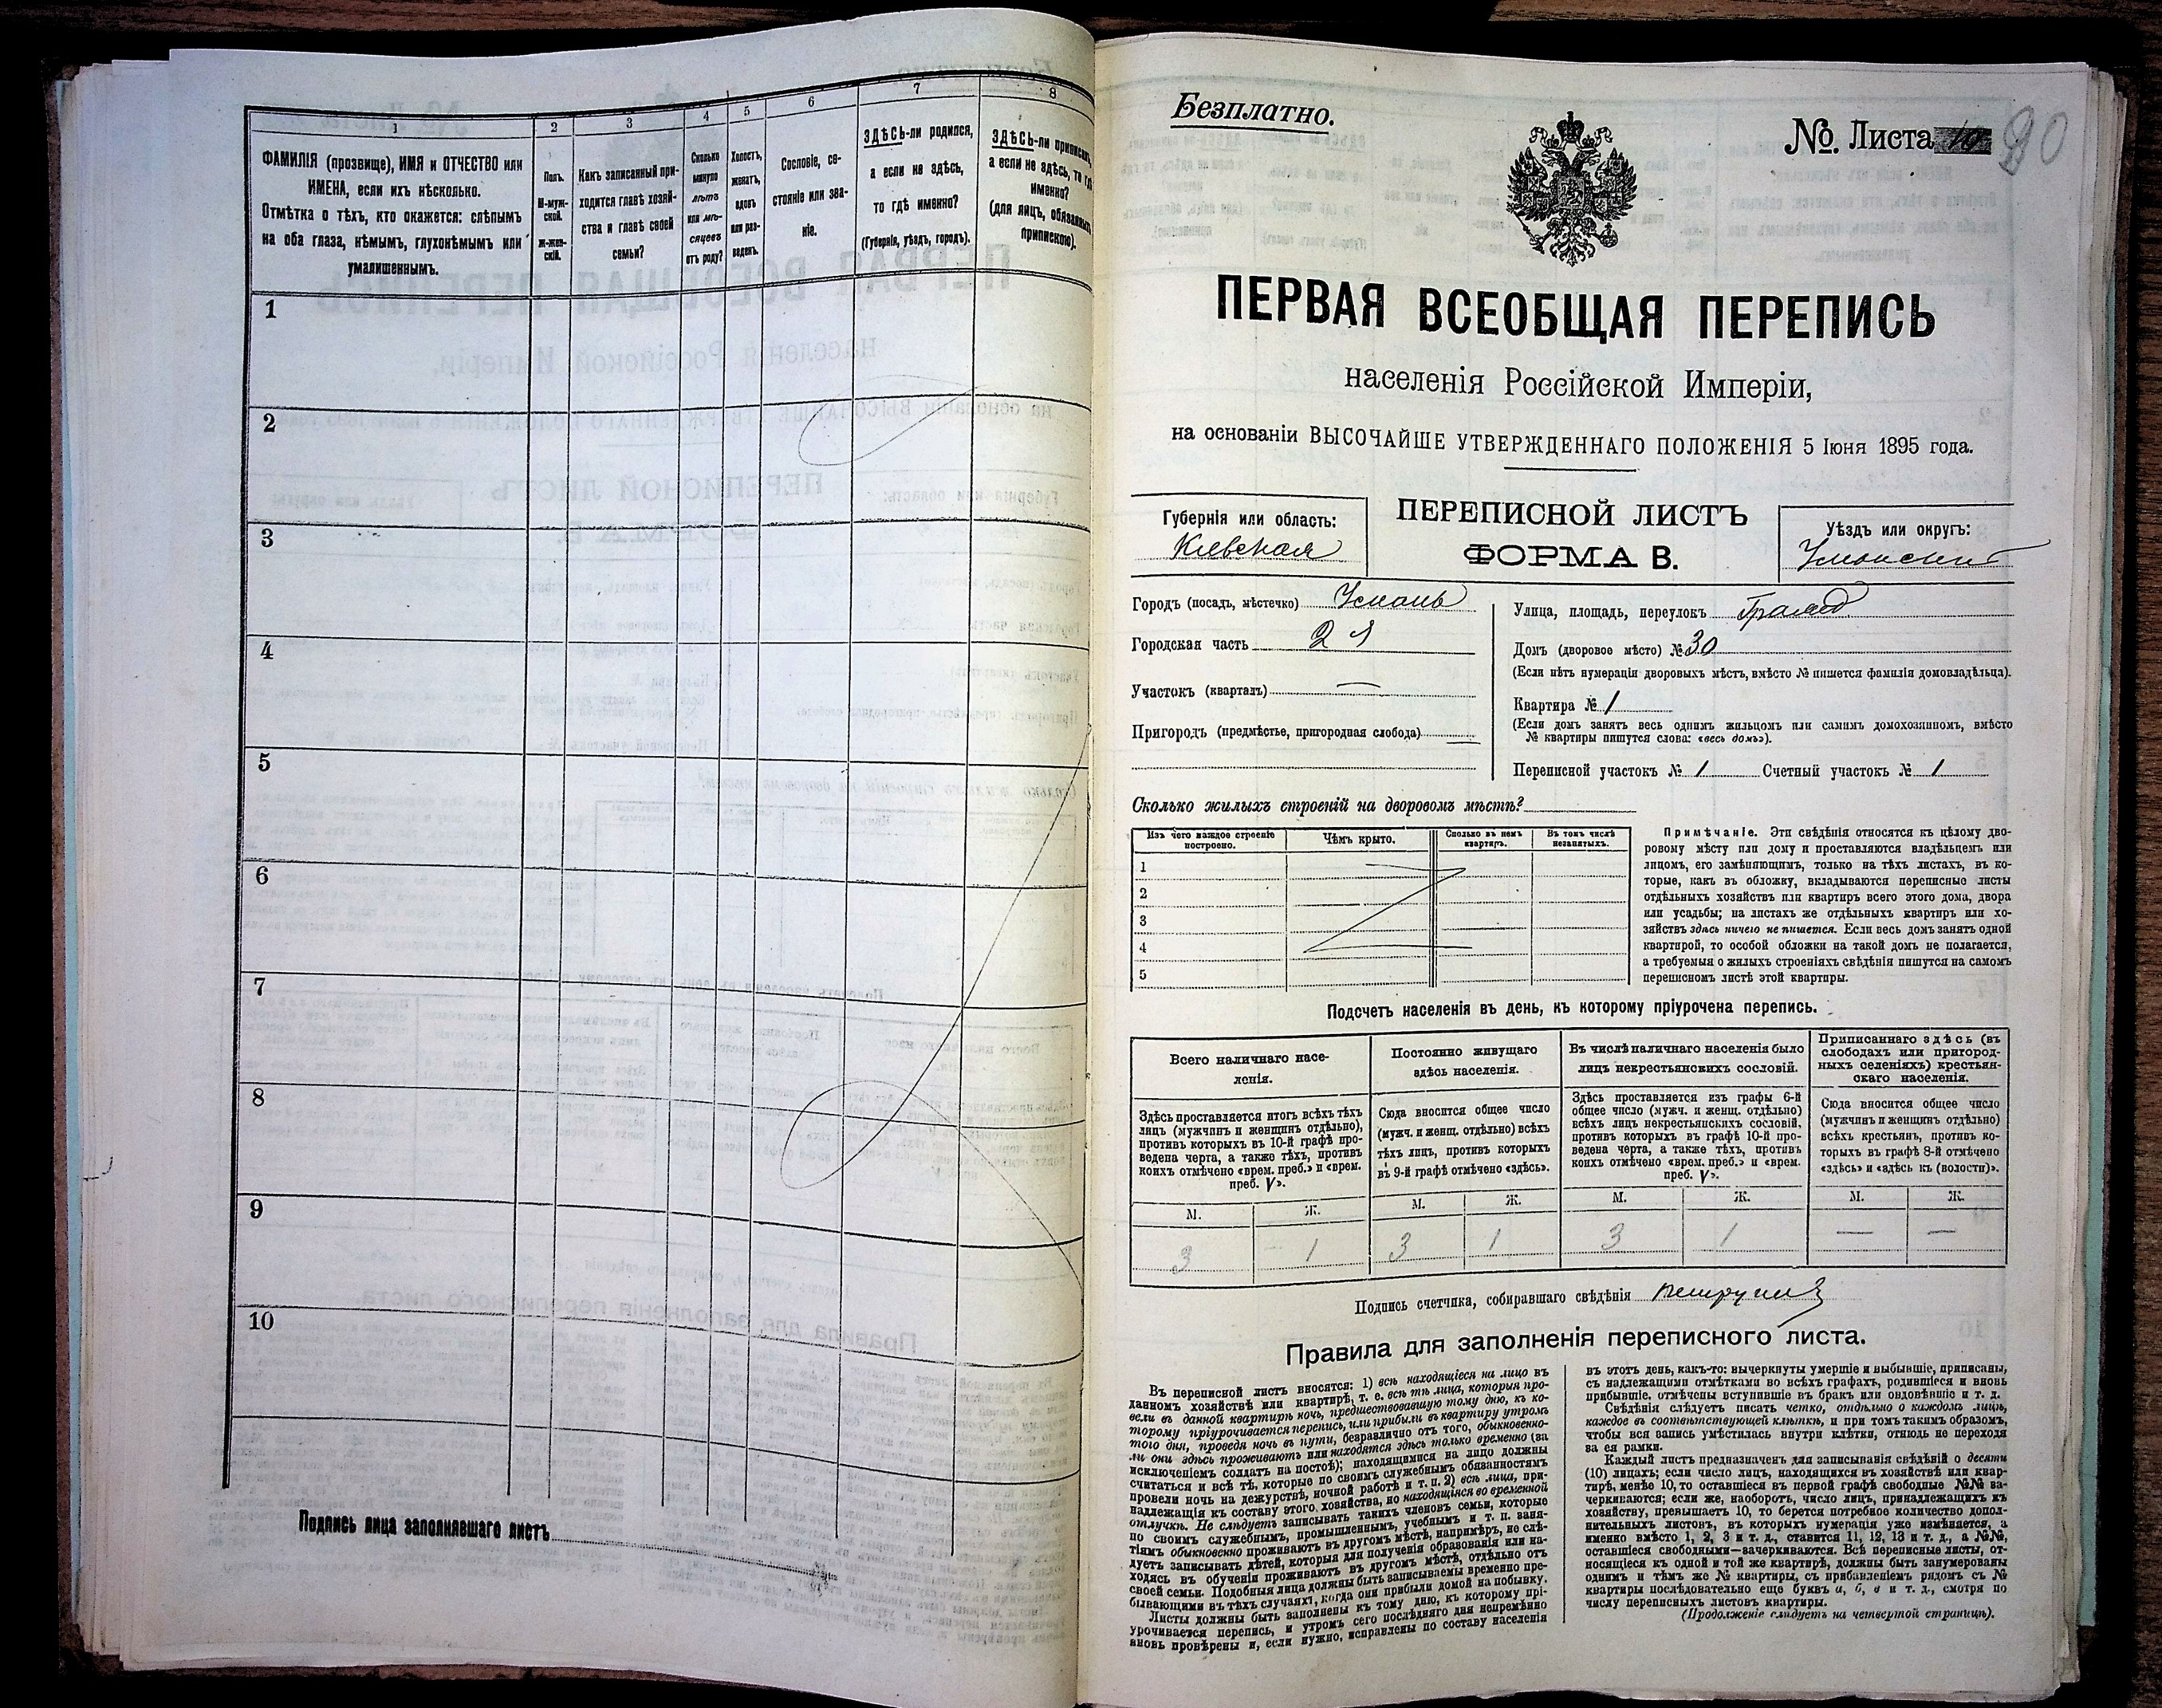 1
2
3
4
5
6
7
8
ФАМИЛІЯ (прозвище), ИМЯ и ОТЧЕСТВО или
ИМЕНА, если ихъ нѣсколько.
Отмѣтка о тѣхъ, кто окажется: слѣпымъ
на оба глаза, нѣмымъ, глухонѣмымъ или
умалишеннымъ.
Полъ.
М-муж-
ской.
Ж-жен-
скій.
Какъ записанный при-
ходится главѣ хозяй-
ства и главѣ своей
семьи?
Сколько
минуло
лѣтъ
или мѣ-
сяцевъ
отъ роду?
Холостъ,
женатъ,
вдовъ
или раз-
веденъ.
Сословіе, со-
стояніе или зва-
ніе.
ЗДѢСЬ-ли родился,
а если не здѣсь,
то гдѣ именно?
(Губернія, уѣздъ, городъ).
ЗДѢСЬ-ли приписанъ,
а если не здѣсь, то гдѣ
именно?
(для лицъ, обязанныхъ
припискою).
1
2
3
4
5
6
7
8
9
10
Подпись лица заполнявшаго листъ
Безплатно.
№ Листа 10 20
ПЕРВАЯ ВСЕОБЩАЯ ПЕРЕПИСЬ
населенія Россійской Имперіи,
на основаніи ВЫСОЧАЙШЕ УТВЕРЖДЕННАГО ПОЛОЖЕНІЯ 5 Іюня 1895 года.
Губернія или область:
Кіевская
ПЕРЕПИСНОЙ ЛИСТЪ
ФОРМА В.
Уѣздъ или округъ:
Уманскій
Городъ (посадъ, мѣстечко) Умань
Городская часть 2 я
Участокъ (кварталъ) —
Пригородъ (предмѣстье, пригородная слобода) —
Улица, площадь, переулокъ
Домъ (дворовое мѣсто) № 30
(Если нѣтъ нумераціи дворовыхъ мѣстъ, вмѣсто № пишется фамилія домовладѣльца).
Квартира № 1
(Если домъ занятъ весь однимъ жильцомъ или самимъ домохозяиномъ, вмѣсто
№ квартиры пишутся слова: «весь домъ»).
Переписной участокъ № 1 Счетный участокъ № 1
Сколько жилыхъ строеній на дворовомъ мѣстѣ?
Изъ чего каждое строеніе
построено.
Чѣмъ крыто.
Сколько въ немъ
квартиръ.
Въ томъ числѣ
незанятыхъ.
1
2
3
4
5
Примѣчаніе. Эти свѣдѣнія относятся къ цѣлому дво-
ровому мѣсту или дому и проставляются владѣльцемъ или
лицомъ, его замѣняющимъ, только на тѣхъ листахъ, въ ко-
торые, какъ въ обложку, вкладываются переписные листы
отдѣльныхъ хозяйствъ или квартиръ всего этого дома, двора
или усадьбы; на листахъ же отдѣльныхъ квартиръ или хо-
зяйствъ здѣсь ничего не пишется. Если весь домъ занятъ одной
квартирой, то особой обложки на такой домъ не полагается,
а требуемыя о жилыхъ строеніяхъ свѣдѣнія пишутся на самомъ
переписномъ листѣ этой квартиры.
Подсчетъ населенія въ день, къ которому пріурочена перепись.
Всего наличнаго насе-
ленія.
Постоянно живущаго
здѣсь населенія.
Въ числѣ наличнаго населенія было
лицъ некрестьянскихъ сословій.
Приписаннаго здѣсь (въ
слободахъ или пригород-
ныхъ селеніяхъ) крестьян-
скаго населенія.
Здѣсь проставляется итогъ всѣхъ тѣхъ
лицъ (мужчинъ и женщинъ отдѣльно),
противъ которыхъ въ 10-й графѣ про-
ведена черта, а также тѣхъ, противъ
коихъ отмѣчено «врем. преб.» и «врем.
преб. V».
Сюда вносится общее число
(мужч. и женщ. отдѣльно) всѣхъ
тѣхъ лицъ, противъ которыхъ
въ 9-й графѣ отмѣчено «здѣсь».
Здѣсь проставляется изъ графы 6-й
общее число (мужч. и женщ. отдѣльно)
всѣхъ лицъ некрестьянскихъ сословій,
противъ которыхъ въ графѣ 10-й про-
ведена черта, а также тѣхъ, противъ
коихъ отмѣчено «врем. преб.» и «врем.
преб. V».
Сюда вносится общее число
(мужчинъ и женщинъ отдѣльно)
всѣхъ крестьянъ, противъ ко-
торыхъ въ графѣ 8-й отмѣчено
«здѣсь» и «здѣсь къ (волости)».
М. Ж. М. Ж. М. Ж. М. Ж.
3 1 3 1 3 1 — —
Подпись счетчика, собиравшаго свѣдѣнія
Правила для заполненія переписного листа.
Въ переписной листъ вносятся: 1) всѣ находящіеся на лицо въ
данномъ хозяйствѣ или квартирѣ, т. е. всѣ тѣ лица, которыя про-
вели въ данной квартирѣ ночь, предшествовавшую тому дню, къ ко-
торому пріурочивается перепись, или прибыли въ квартиру утромъ
того дня, проведя ночь въ пути, безразлично отъ того, обыкновенно-
ли они здѣсь проживаютъ или находятся здѣсь только временно (за
исключеніемъ солдатъ на постоѣ); находящимися на лицо должны
считаться и всѣ тѣ, которые по своимъ служебнымъ обязанностямъ
провели ночь на дежурствѣ, ночной работѣ и т. п. 2) всѣ лица, при-
надлежащія къ составу этого хозяйства, но находящіяся во временной
отлучкѣ. Не слѣдуетъ записывать такихъ членовъ семьи, которые
по своимъ служебнымъ, промышленнымъ, учебнымъ и т. п. заня-
тіямъ обыкновенно проживаютъ въ другомъ мѣстѣ, напримѣръ, не слѣ-
дуетъ записывать дѣтей, которыя для полученія образованія или на-
ходясь въ обученіи проживаютъ въ другомъ мѣстѣ, отдѣльно отъ
своей семьи. Подобныя лица должны быть записываемы временно пре-
бывающими въ тѣхъ случаяхъ, когда они прибыли домой на побывку.
Листы должны быть заполнены къ тому дню, къ которому прі-
урочивается перепись, и утромъ сего послѣдняго дня непремѣнно
вновь провѣрены и, если нужно, исправлены по составу населенія
въ этотъ день, какъ-то: вычеркнуты умершіе и выбывшіе, приписаны,
съ надлежащими отмѣтками во всѣхъ графахъ, родившіеся и вновь
прибывшіе, отмѣчены вступившіе въ бракъ или овдовѣвшіе и т. д.
Свѣдѣнія слѣдуетъ писать четко, отдѣльно о каждомъ лицѣ,
каждое въ соотвѣтствующей клѣткѣ, и при томъ такимъ образомъ,
чтобы вся запись умѣстилась внутри клѣтки, отнюдь не переходя
за ея рамки.
Каждый листъ предназначенъ для записыванія свѣдѣній о десяти
(10) лицахъ; если число лицъ, находящихся въ хозяйствѣ или квар-
тирѣ, менѣе 10, то оставшіеся въ первой графѣ свободные №№ за-
черкиваются; если же, наоборотъ, число лицъ, принадлежащихъ къ
хозяйству, превышаетъ 10, то берется потребное количество допол-
нительныхъ листовъ, въ которыхъ нумерація уже измѣняется, а
именно вмѣсто 1, 2, 3 и т. д., ставится 11, 12, 13 и т. д., а №№,
оставшіеся свободными—зачеркиваются. Всѣ переписные листы, от-
носящіеся къ одной и той же квартирѣ, должны быть занумерованы
однимъ и тѣмъ же № квартиры, съ прибавленіемъ рядомъ съ №
квартиры послѣдовательно еще буквъ а, б, в и т. д., смотря по
числу переписныхъ листовъ квартиры.
(Продолженіе слѣдуетъ на четвертой страницѣ).